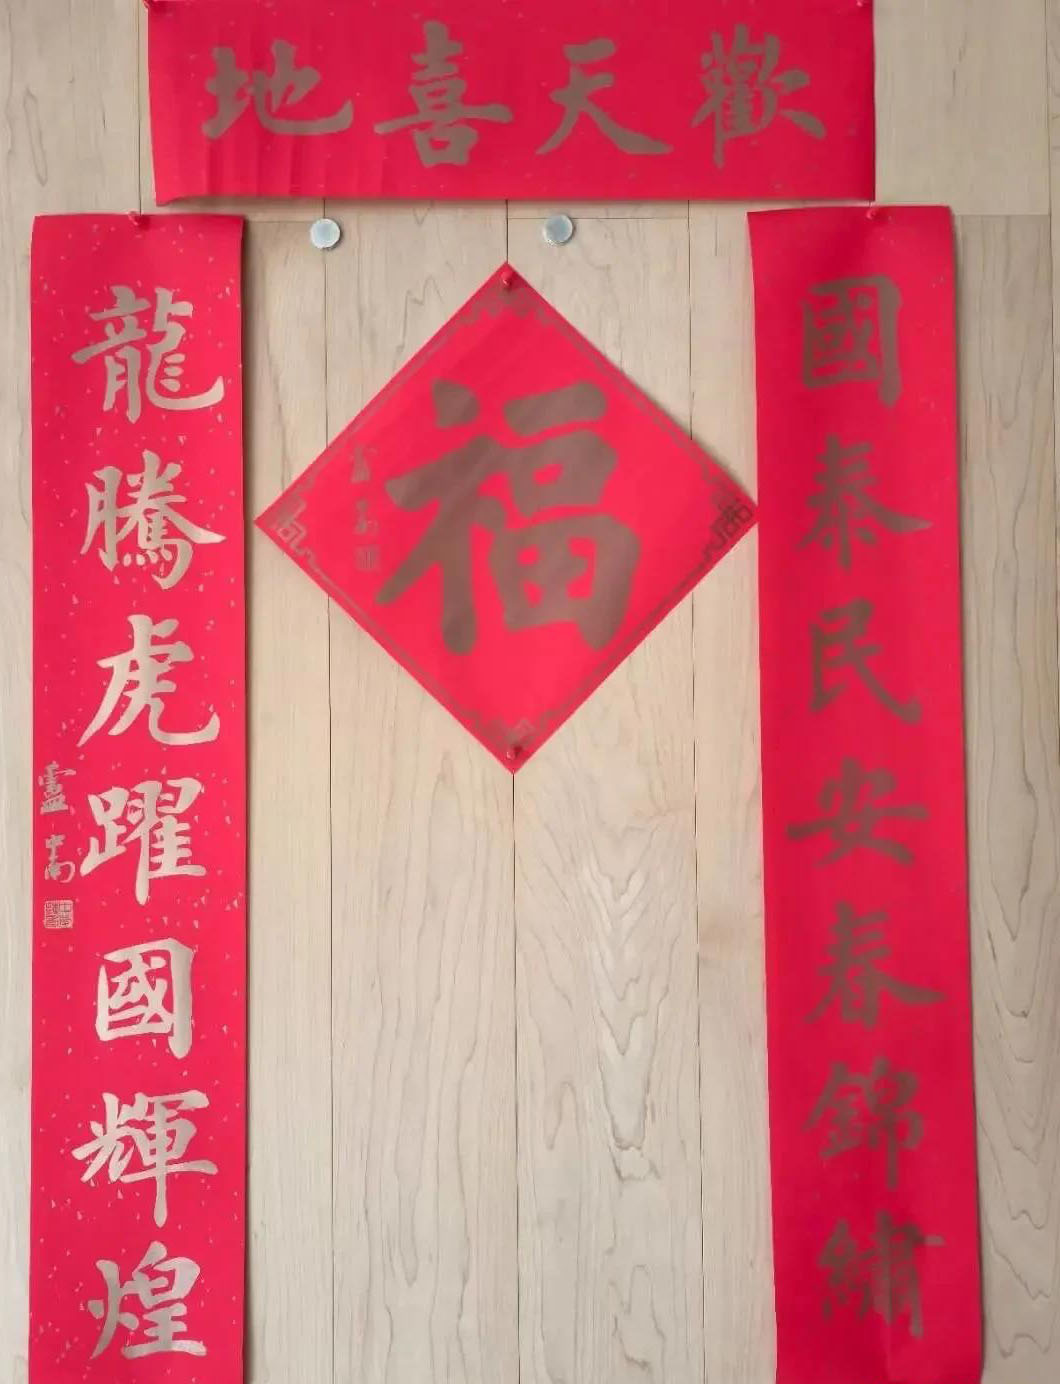 歡天喜地
國泰民安春錦繡
福
龍騰虎躍國輝煌
盧中南